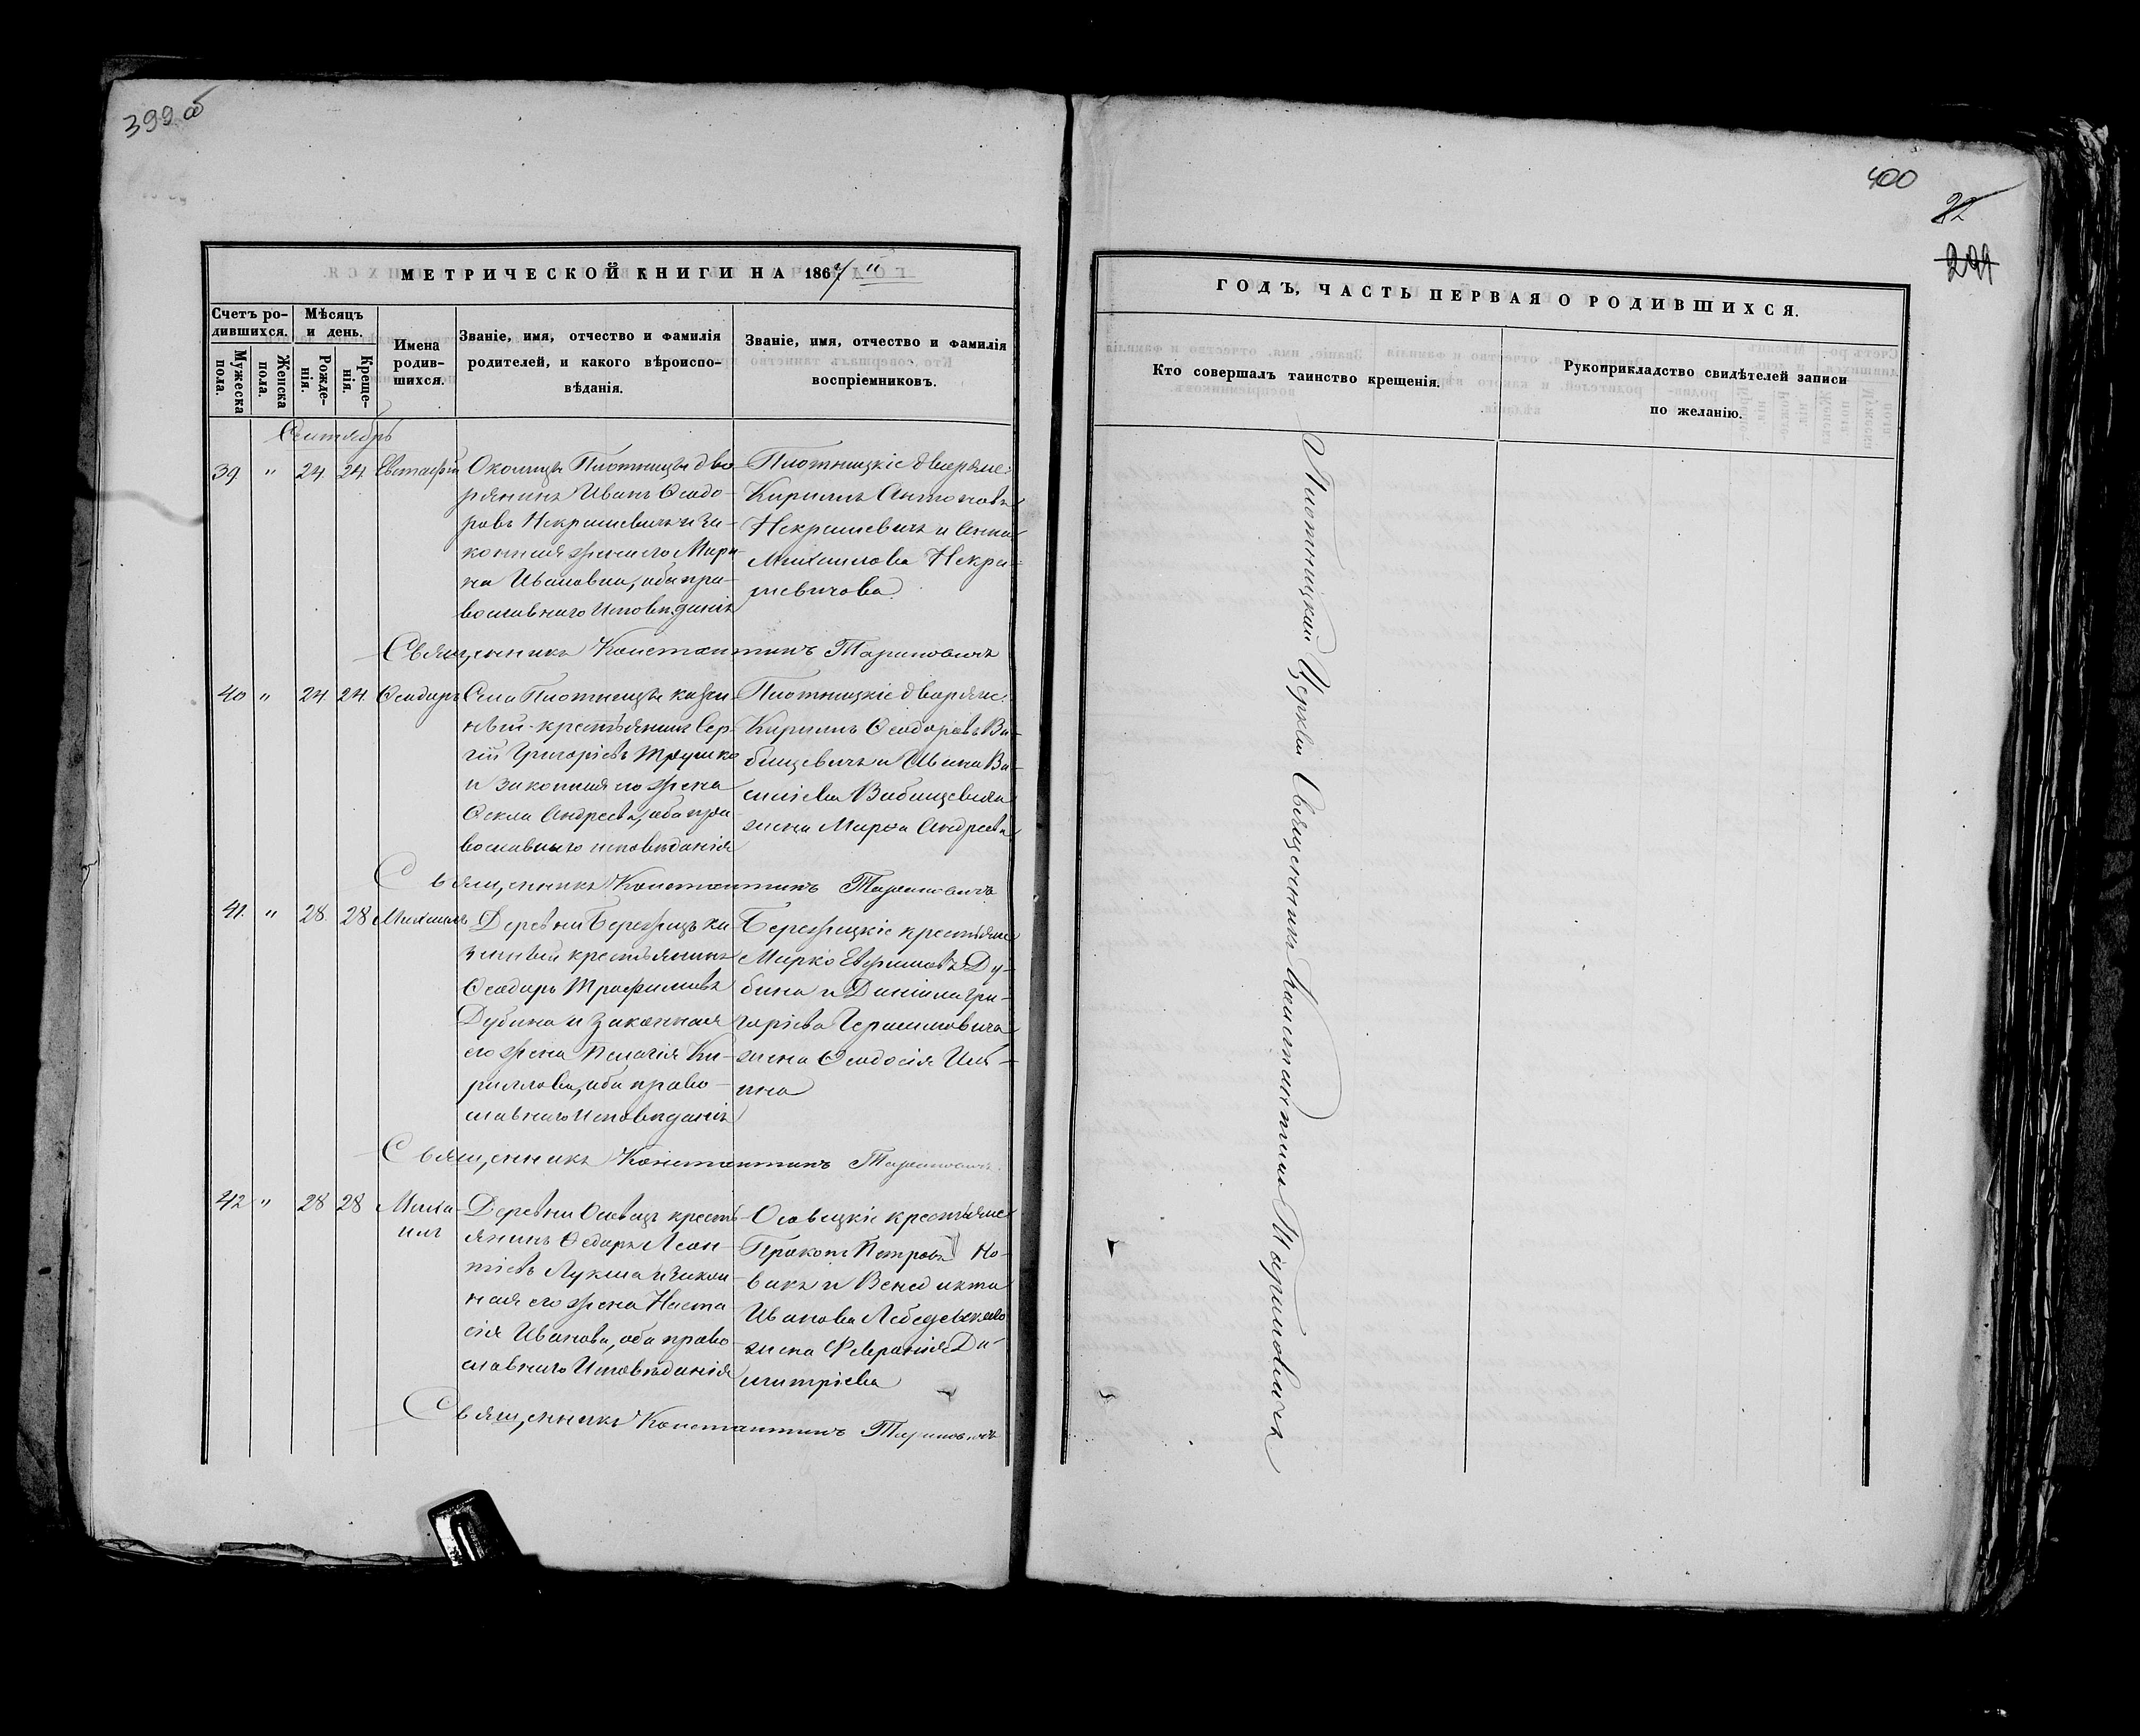 399 об
МЕТРИЧЕСКОЙ КНИГИ НА 1867 "
Счетъ ро-
дившихся.
Мѣсяцъ
и день.
Мужеска
пола.
Женска
пола.
Рожде-
нія.
Креще-
нія.
Имена
родив-
шихся.
Званіе, имя, отчество и фамилія
родителей, и какого вѣроиспо-
вѣданія.
Званіе, имя, отчество и фамилія
воспріемниковъ.
Сентябрь
39. " 24. 24. Евстафій
Околицы Плотницы дво-
рянинъ Иванъ Ѳеодо-
ровъ Некрашевичъ и за-
конная жена его Мари-
на Иванова, оба пра-
вославнаго исповѣданія
Плотницкіе дворяне:
Кириллъ Антоновъ
Некрашевичъ и Анна
Михаилова Некра-
шевичова.
Священникъ Константинъ Тариновичъ
40 " 24. 24. Ѳеодоръ
Села Плотницы казен-
ный крестьянинъ Сер-
гій Григоріевъ Трушко
и законная его жена
Ѳекла Андреева, оба пра-
вославнаго исповѣданія
Плотницкіе дворяне:
Кириллъ Ѳеодоровъ Ва-
бищевичъ и Ивана Ва-
силіева Вабищевича
жена Марѳа Андреева
Священникъ Константинъ Тариновичъ
41. " 28. 28 Михаилъ
Деревни Бережцъ ка-
зенный крестьянинъ
Ѳеодоръ Трофимовъ
Дубина и законная
его жена Пелагія Ки-
риллова, оба право-
славнаго исповѣданія
Бережицкіе крестьяне
Марко Ефимовъ Ду-
бина и Даніила Гри-
горіева Герасимовича
жена Ѳеодосія Иль-
ина
Священникъ Константинъ Тариновичъ
42 " 28 28 Миха-
илъ
Деревни Осовецъ кресть-
янинъ Ѳедоръ Леон-
тіевъ Лукша и закон-
ная его жена Наста-
сія Иванова, оба право-
славнаго исповѣданія
Осовецкіе крестьяне
Прокопъ Петровъ Но-
викъ и Венедикта
Иванова Лебедевскаго
жена Февронія Ди-
митріева
Священникъ Константинъ Тариновичъ
400
22
ГОДЪ, ЧАСТЬ ПЕРВАЯ О РОДИВШИХСЯ.
Кто совершалъ таинство крещенія.
Рукоприкладство свидѣтелей записи
по желанію.
Плотницкой Церкви Священникъ Константинъ Тариновичъ